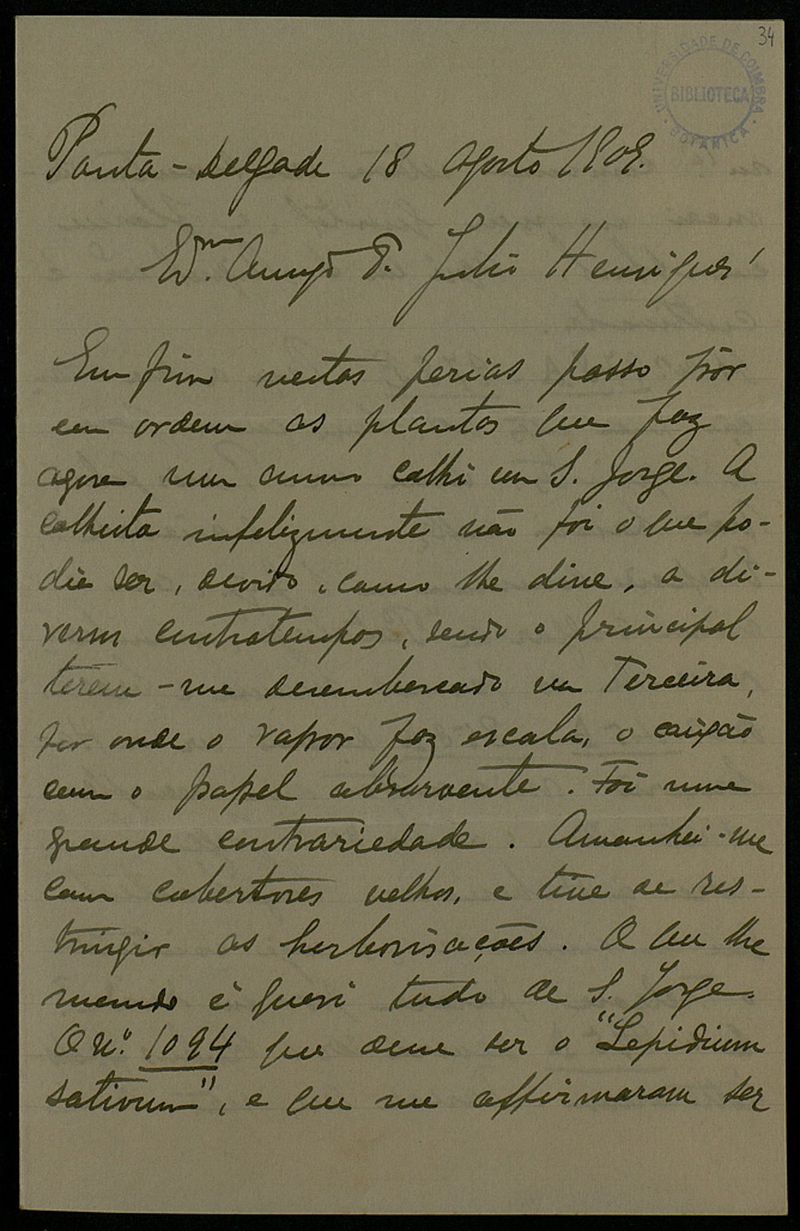 34
UNIVERSIDADE DE COIMBRA
BIBLIOTECA
BOTANICA
Ponta-Delgada 18 Agosto 1909.
Ex.mo Amigo Dr. Julio Henriques
Em fim nestas ferias posso pôr
em ordem as plantas que faz
agora um anno colhi em S. Jorge. A
colheita infelizmente não foi o que po-
dia ser, devido, como lhe disse, a di-
versos contratempos, sendo o principal
terem-me desembarcado na Terceira,
por onde o vapor faz escala, o caixão
com o papel absorvente. Foi uma
grande contrariedade. Amanhei-me
com cobertores velhos, e tive de res-
tringir as herborisações. O que lhe
mando é quasi tudo de S. Jorge.
O n.º 1094 que deve ser o "Lepidium
sativum", e que me affirmaram ser